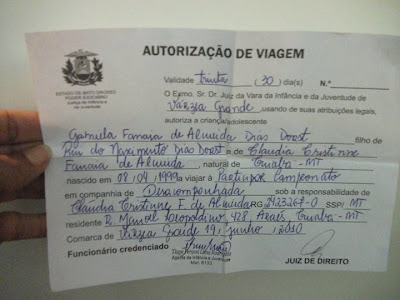 AUTORIZAÇÃO DE VIAGEM
ESTADO DE MATO GROSSO
PODER JUDICIÁRIO
Justiça da Infância e
da Juventude
Validade trinta (30) dia(s) N.º
O Exmo. Sr. Dr. Juiz da Vara da Infância e da Juventude de
Várzea Grande, usando de suas atribuições legais,
autoriza a criança/adolescente
Gabriela Fanaia de Almeida Dias Doost filho de
Rui do Nascimento Dias Doost e de Claudia Cristinne
Fanaia de Almeida, natural de Cuiabá - MT
nascido em 08/04/1999 a viajar à Participar Campeonato
em companhia de Desacompanhada sob a responsabilidade de
Cláudia Cristinne F. de Almeida RG 2423267-0 SSP/ MT
residente R. Manoel Leopoldino, 428, Araés, Cuiabá - MT
Comarca de Várzea Grande 19, junho, 2010
Funcionário credenciado
Agente da Infância e Juventude
JUIZ DE DIREITO